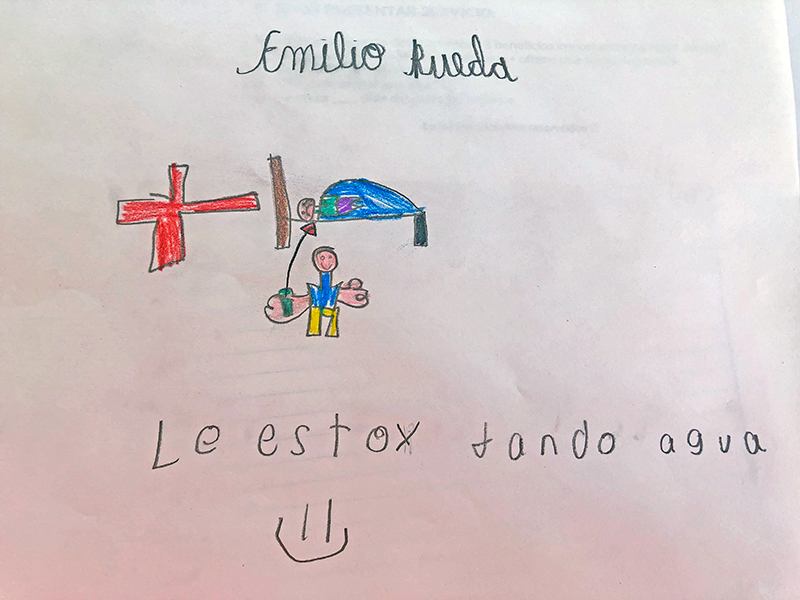 Emilio Rueda
Le estox tando agua